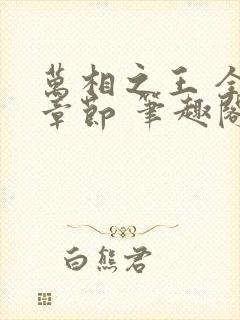 萬相之王 全
章節 筆趣閣
白熊君